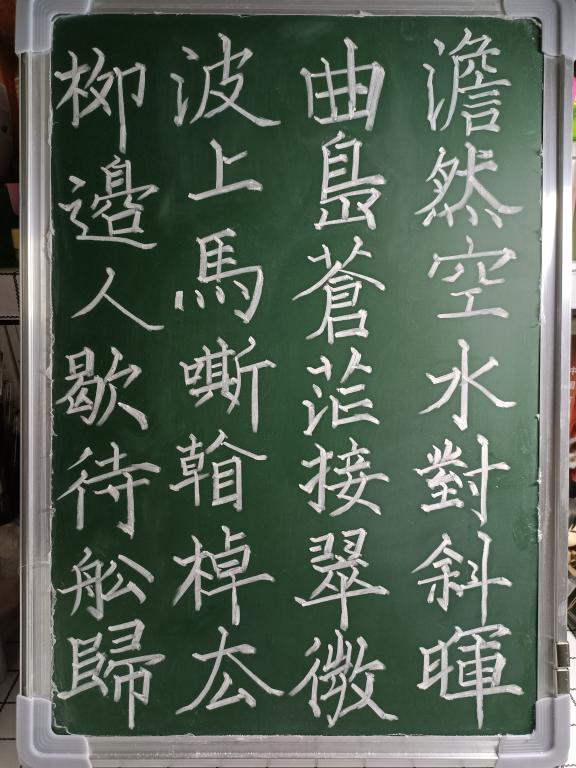 澹然空水對斜暉
曲島蒼茫接翠微
波上馬嘶看棹厺
柳邊人歇待舩歸